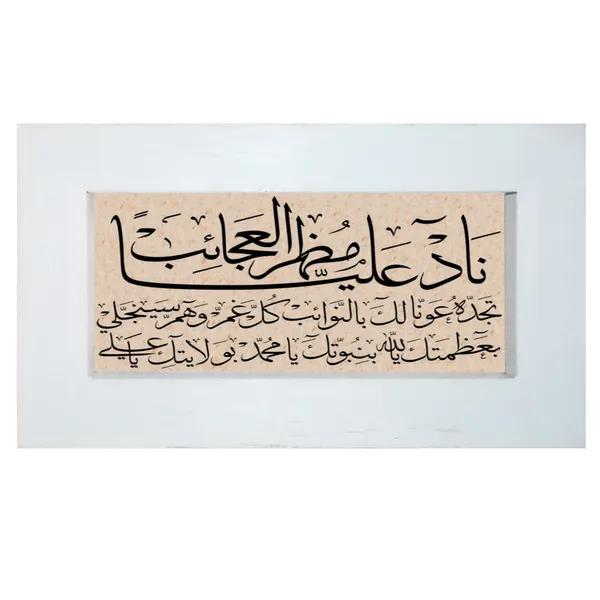 نَادِ عَلِيًّا مَظْهَرَ الْعَجَائِبِ
تجدهُ عونًا لك بالنوائب كلّ غمّ وهمّ سينجلي
بعظمتك يا الله بنبوّتك يا محمّد بولايتك يا علي